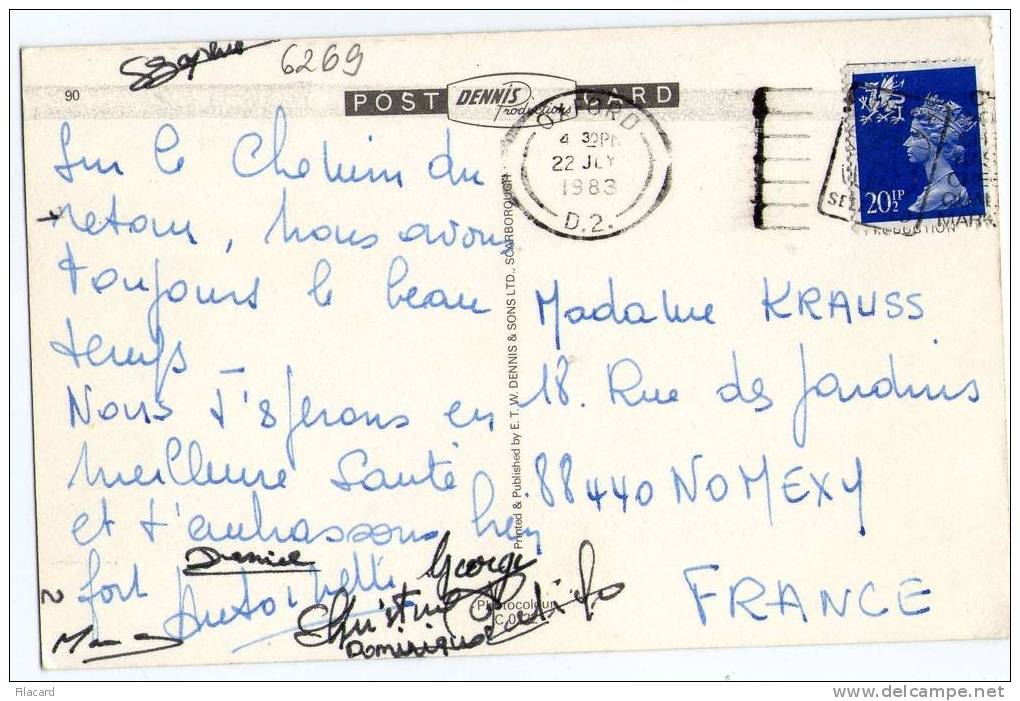 Sophie 6269
90
POST DENNIS Productions CARD
OXFORD
4 30PM
22 JLY
1983
D.2.
20½P
MARK
PRODUCTION
Sur le Chemin du
retour, nous avons
toujours le beau
temps
Nous t'espérons en
meilleure Santé
et t'embrassons bien
fort
Denise
George
Christine
Dominique
Madame KRAUSS
18. Rue des Jardins
88440 NOMEXY
FRANCE
Printed & Published by E. T. W. DENNIS & SONS LTD., SCARBOROUGH
Photocolour
filacard
www.delcampe.net